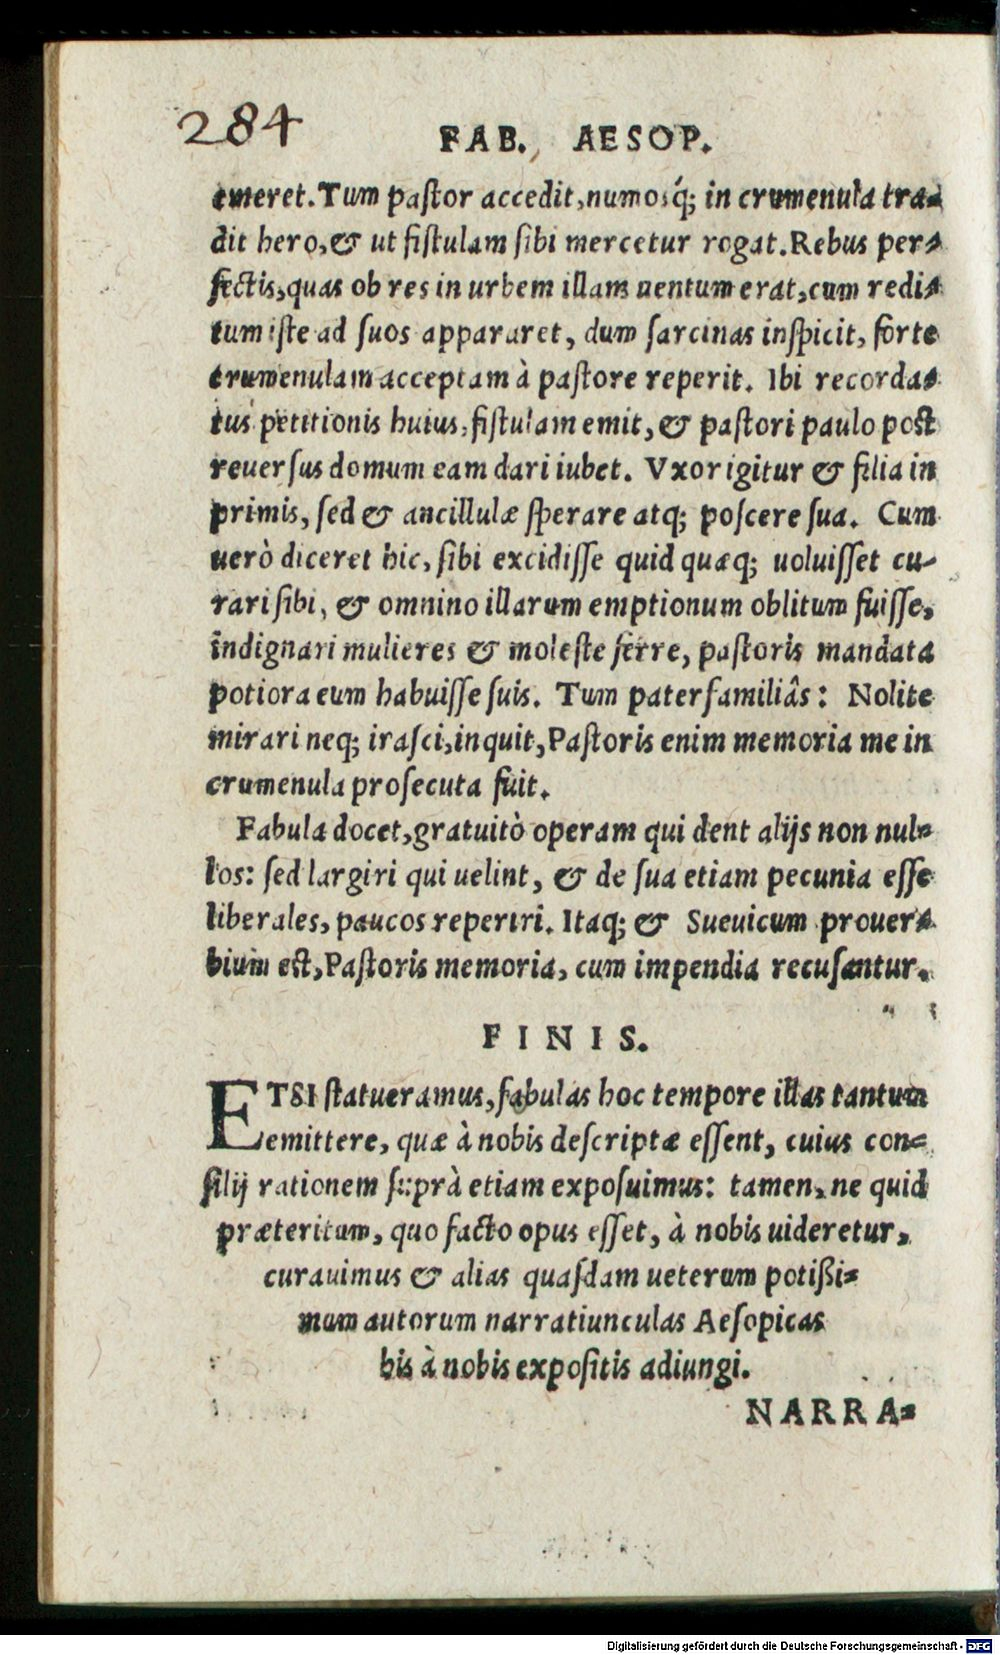 284
FAB. AESOP.
emeret. Tum paſtor accedit, numosq́; in crumenula tra-
dit hero, & ut fiſtulam ſibi mercetur rogat. Rebus per-
fectis, quas ob res in urbem illam uentum erat, cum redi-
tum iſte ad ſuos appararet, dum ſarcinas inſpicit, forte
crumenulam acceptam à paſtore reperit. Ibi recorda-
tus petitionis huius, fiſtulam emit, & paſtori paulo poſt
reuerſus domum eam dari iubet. Vxor igitur & filia in
primis, ſed & ancillulæ ſperare atq; poſcere ſua. Cum
uerò diceret hic, ſibi excidiſſe quid quæq; uoluiſſet cu-
rari ſibi, & omnino illarum emptionum oblitum fuiſſe,
indignari mulieres & moleſte ferre, paſtoris mandata
potiora eum habuiſſe ſuis. Tum paterfamiliâs: Nolite
mirari neq; iraſci, inquit, Paſtoris enim memoria me in
crumenula proſecuta fuit.
Fabula docet, gratuitò operam qui dent alijs non nul-
los: ſed largiri qui uelint, & de ſua etiam pecunia eſſe
liberales, paucos reperiri. Itaq; & Sueuicum prouer-
bium eſt, Paſtoris memoria, cum impendia recuſantur.
FINIS.
ETSI ſtatueramus, fabulas hoc tempore illas tantum
emittere, quæ à nobis deſcriptæ eſſent, cuius con-
ſilij rationem ſuprà etiam expoſuimus: tamen, ne quid
præteritum, quo facto opus eſſet, à nobis uideretur,
curauimus & alias quaſdam ueterum potißi-
mum autorum narratiunculas Aeſopicas
his à nobis expoſitis adiungi.
NARRA-
Digitalisierung gefördert durch die Deutsche Forschungsgemeinschaft - DFG